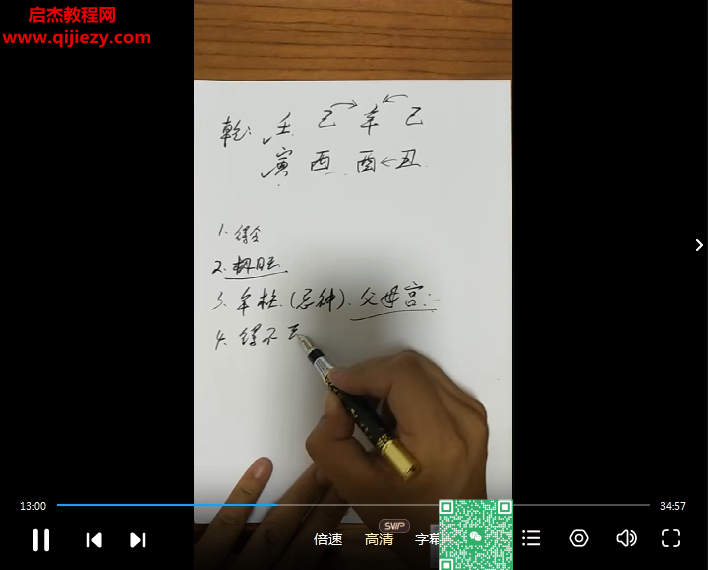 启杰教程网
www.qijiezy.com
乾: 壬 己 辛 己
寅 酉 酉 丑
1. 得令
2. 印旺
3. 年柱 (忌神). 父母宫:
4. 得不
13:00
34:57
倍速
SVIP
高清
字幕